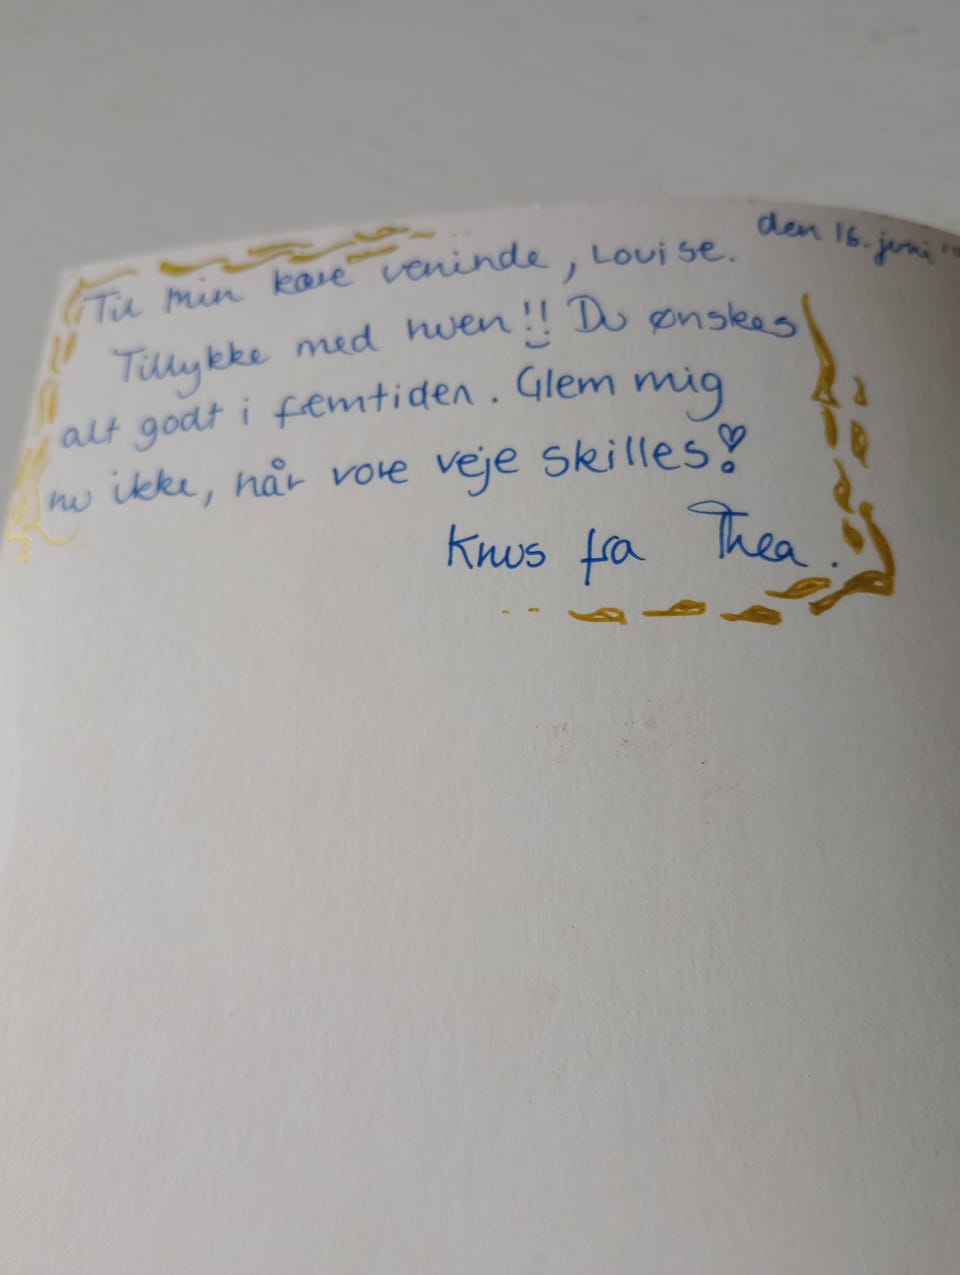 den 16. juni
Til min kære veninde, Louise.
Tillykke med huen!! Du ønskes
alt godt i fremtiden. Glem mig
nu ikke, når vore veje skilles!
Knus fra Thea.